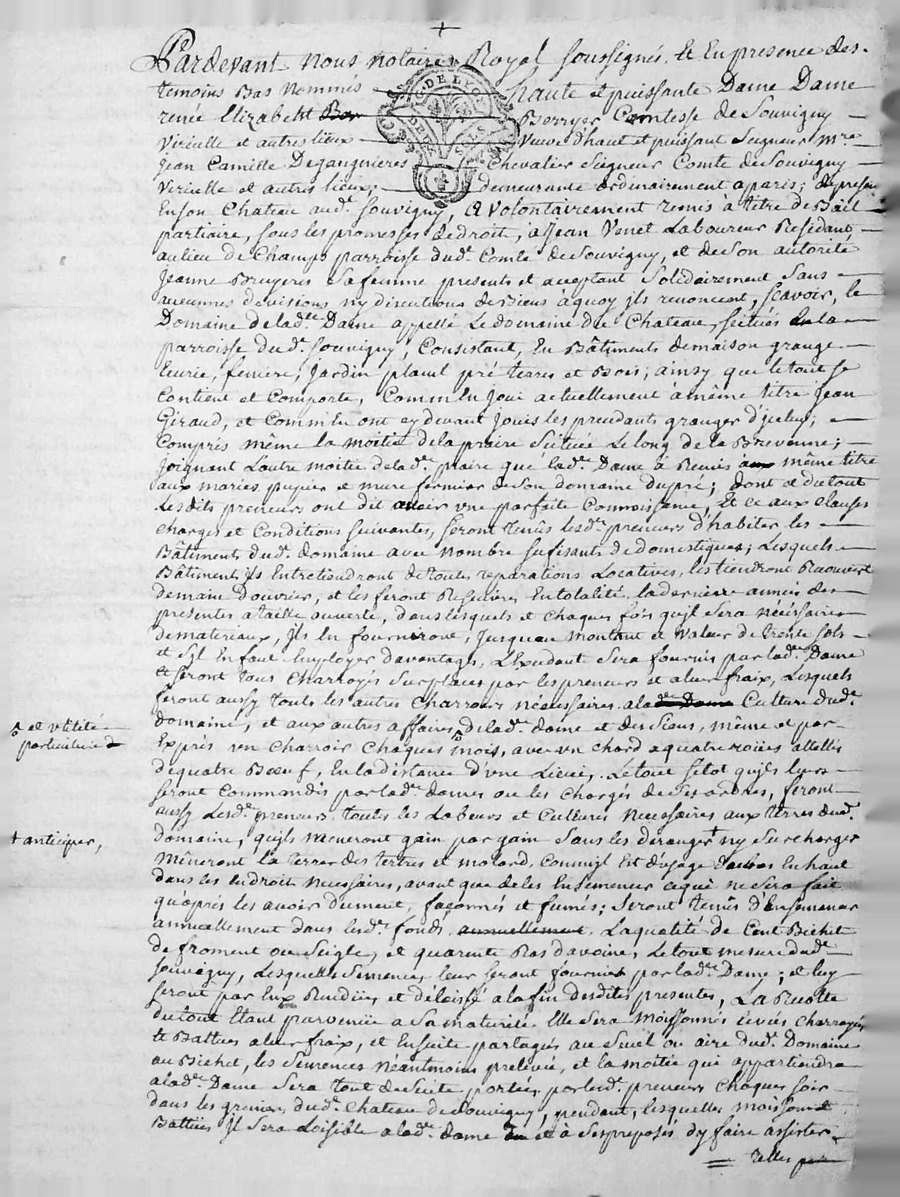 +
Pardevant nous notaire Royal soussigné, et en presence des
temoins bas nommés haute et puissante Dame Dame
renée Elizabeth Berryer Comtesse de Souvigny
Virielle et autres lieux Veuve d'haut et puissant Seigneur Mre
Jean Camille Degangnieres Chevalier Seigneur Comte de Souvigny
Virielle et autres lieux, demeurante ordinairement a paris; de present
en son Chateau aud. Souvigny, a volontairement remis à titre de Bail
partiaire, sous les promesses de droit, à Jean Venet Laboureur Residant
au lieu de Champs parroisse dud. Comte de Souvigny, et de son autorité
Jeanne Bruyeres sa femme presents et aceptant solidairement sans
aucunnes devisions ny discutions de Biens à quoy ils renoncent, scavoir, le
Domaine de lad.e Dame appellé Le domaine du Chateau, scitués en la
parroisse dud. Souvigny, Consistant, en Bâtiments de maison grange
Ecurie, feniere, Jardin, pré terres et Bois; ainsy que le tout se
Contient et Comporte, Comm'en Joui actuellement à même titre Jean
Giraud, et Comm'en ont cy devant Jouis les precedants granger d'iceluy,
Compris même la moitié de la praire scituée le long de la Brevenne;
Joignant l'autre moitié de lad. praire que lad. Dame à Remis au même titre
aux mariés pupier et mure fermier de son domaine du pré; dont et du tout
lesdits preneurs ont dit avoir une parfaite Connoissance, Et ce aux clauses
charges et Conditions suivantes, seront tenûs lesd. preneurs d'habiter les
Bâtiments dud. domaine avec nombre sufisants de domestiques; Lesquels
Bâtiments ils entretiendront de toutes reparations Locatives, les tiendront Recouvert
de main d'ouvrier, et les feront en totalité la derniere année des
presentes a taille ouverte, dans lesquels et chaques fois qu'il sera nécéssaire
de materiaux, ils en fourniront, Jusqu'au montant et valeur de trente sols
et s'il en faut employer d'avantage, L'Excedant sera fournis par lad. Dame
et seront tous Charroyés sur place par les preneurs et a leur fraix, Lesquels
feront aussy touts les autres Charrois nécessaires a la Culture dud.
domaine, et aux autres affaires de lad. dame et des siens, même et par
^ et utilité
particuliere
Exprés un Charroir Chaques mois, avec un chard a quatre roües attellés
de quatre Bœuf, en la distance d'une Lieüe, Le tout sitot qu'ils leurs
seront Commandés par lad. dames ou les Chargés de ses ordres, feront
aussy Lesd. preneurs toutes les Labeurs et Cultures Nécessaires aux terres dud.
domaine, qu'ils meneront gain par gain sans les deranger + ny surcharger
+ anticiper,
Mêneront la terre des tertres et molard, Comm'il est d'usage en haut
dans les endroit necessaires, avant que de les Ensemencer ce qui ne sera fait
qu'aprés les avoir dument, façonnés et fumés; seront tenûs d'Ensemencer
annuellement dans lesd. fonds, annuellement La qualité de Cent Bichet
de froment ou seigle, et quarente Ras d'avoine, Le tout mesure dud.
Souvigny, Lesquelle semence, leur seront fournies par lad. Dame; et luy
seront par eux Rendües, et délaissé a la fin desdites presentes, La Recolte
du tout étant parvenüe a sa maturité. Elle sera moissonnés Levées charroyés
et Battues a leur fraix, et Ensuite partagés au Suël ou aire dud. Domaine
au Bichet, les semences néantmoins prelevée, et la moitié qui appartiendra
a lad. Dame sera tout de suite portée, par lesd. preneurs Chaques soir
dans les greniers dud. Chateau de Souvigny, pendant, lesquelles moissons et
Battües, Il sera loisible a lad. dame et à ses preposés d'y faire assister
telles